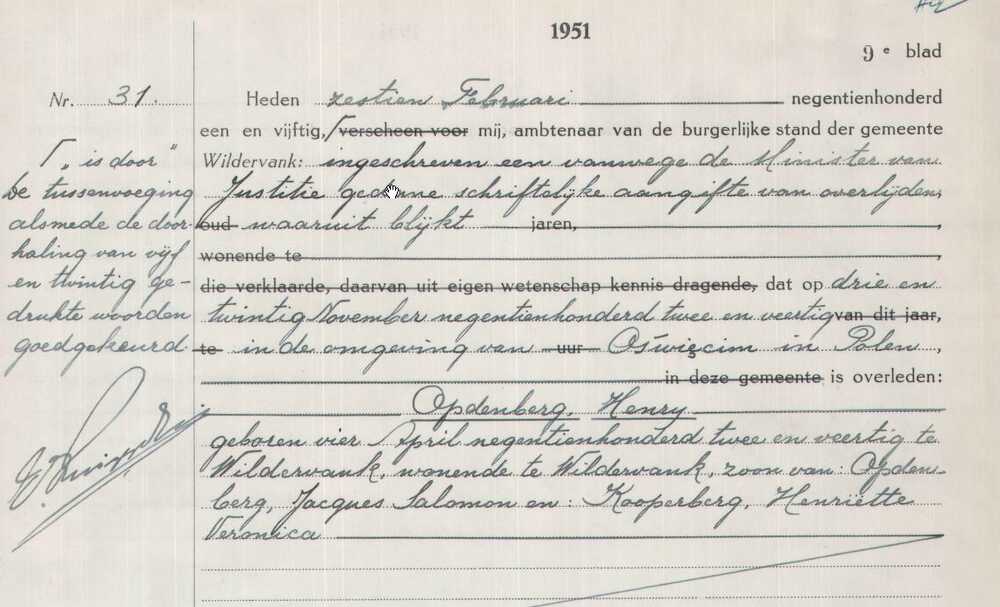 1951
9e blad
Nr. 31. Heden zestien Februari negentienhonderd
een en vijftig, ⌈ verscheen voor mij, ambtenaar van de burgerlijke stand der gemeente
Wildervank: ingeschreven een vanwege de Minister van
Justitie gedane schriftelijke aangifte van overlijden,
oud waaruit blijkt jaren,
wonende te
die verklaarde, daarvan uit eigen wetenschap kennis dragende, dat op drie en
twintig November negentienhonderd twee en veertig van dit jaar,
te in de omgeving van uur Oświęcim in Polen,
in deze gemeente is overleden:
Opdenberg, Henry
geboren vier April negentienhonderd twee en veertig te
Wildervank, wonende te Wildervank, zoon van: Opden-
berg, Jacques Salomon en: Kooperberg, Henriëtte
Veronica
⌈ "is door"
De tussenvoeging
alsmede de door-
haling van vijf
en twintig ge-
drukte woorden
goedgekeurd